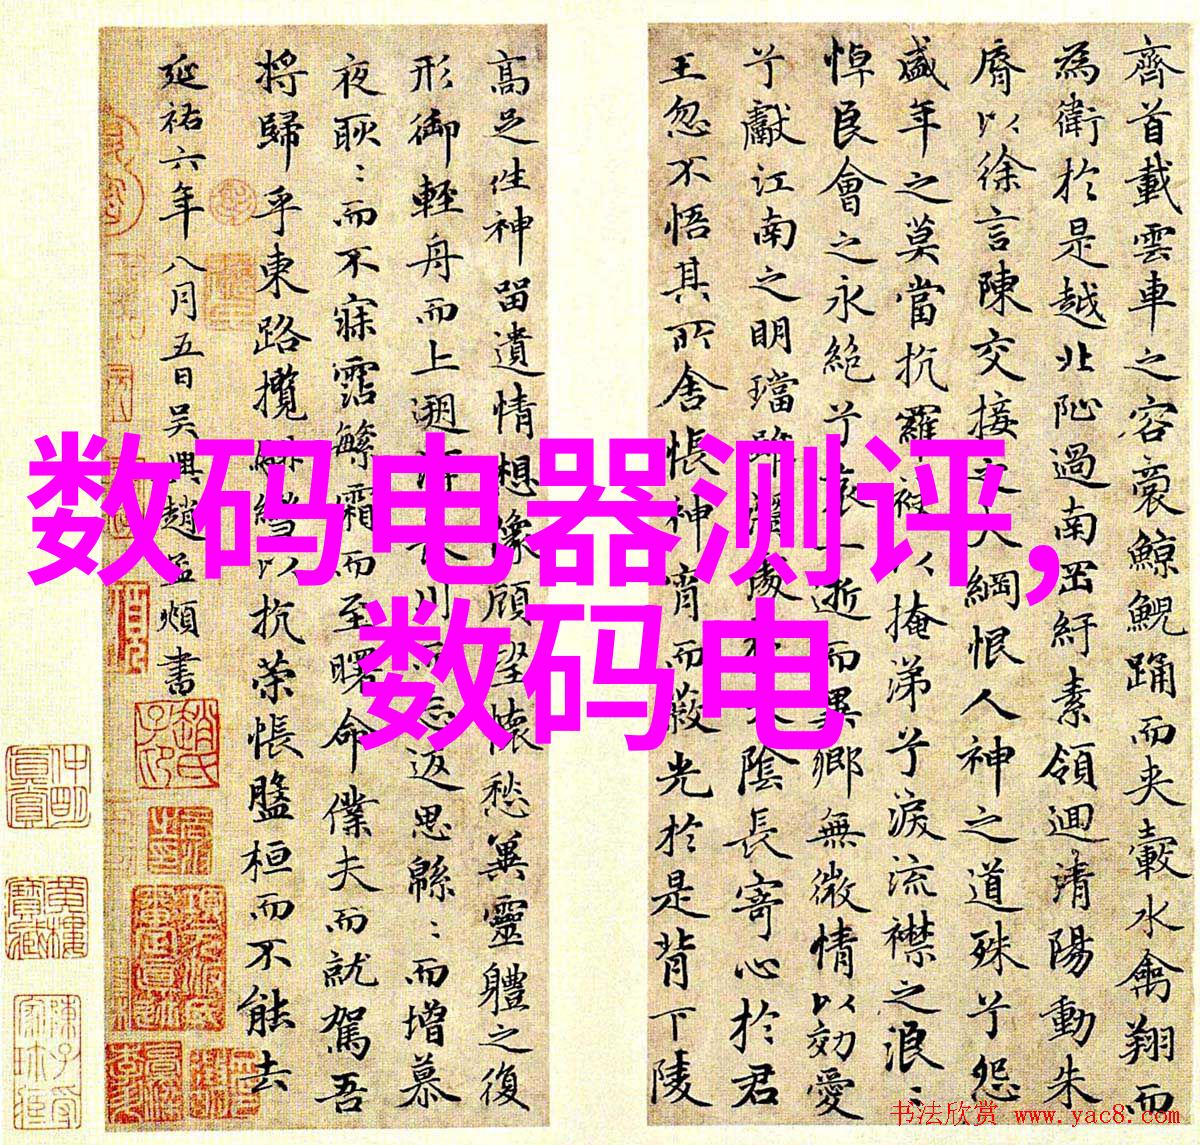 齊首載雲車之容裔鯨鯢踊而夾轂水禽翔而
為衛於是越北沚過南岡紆素領迴清陽動朱
脣以徐言陳交接之大綱恨人神之道殊兮怨
盛年之莫當抗羅袂以掩涕兮淚流襟之浪〻
悼良會之永絕兮哀一逝而異鄉無微情以効愛
兮獻江南之明璫雖潛處於太陰長寄心於君
王忽不悟其所舍悵神宵而蔽光於是背下陵
高足往神留遺情想像顧望懷愁冀靈體之復
形御輕舟而上遡浮長川而忘返思緜〻而增慕
夜耿〻而不寐霑繁霜而至曙命僕夫而就駕吾
將歸乎東路攬騑轡以抗策悵盤桓而不能去
延祐六年八月五日吳興趙孟頫書
数码电器测评,
数码电
书法欣赏 www.yac8.com